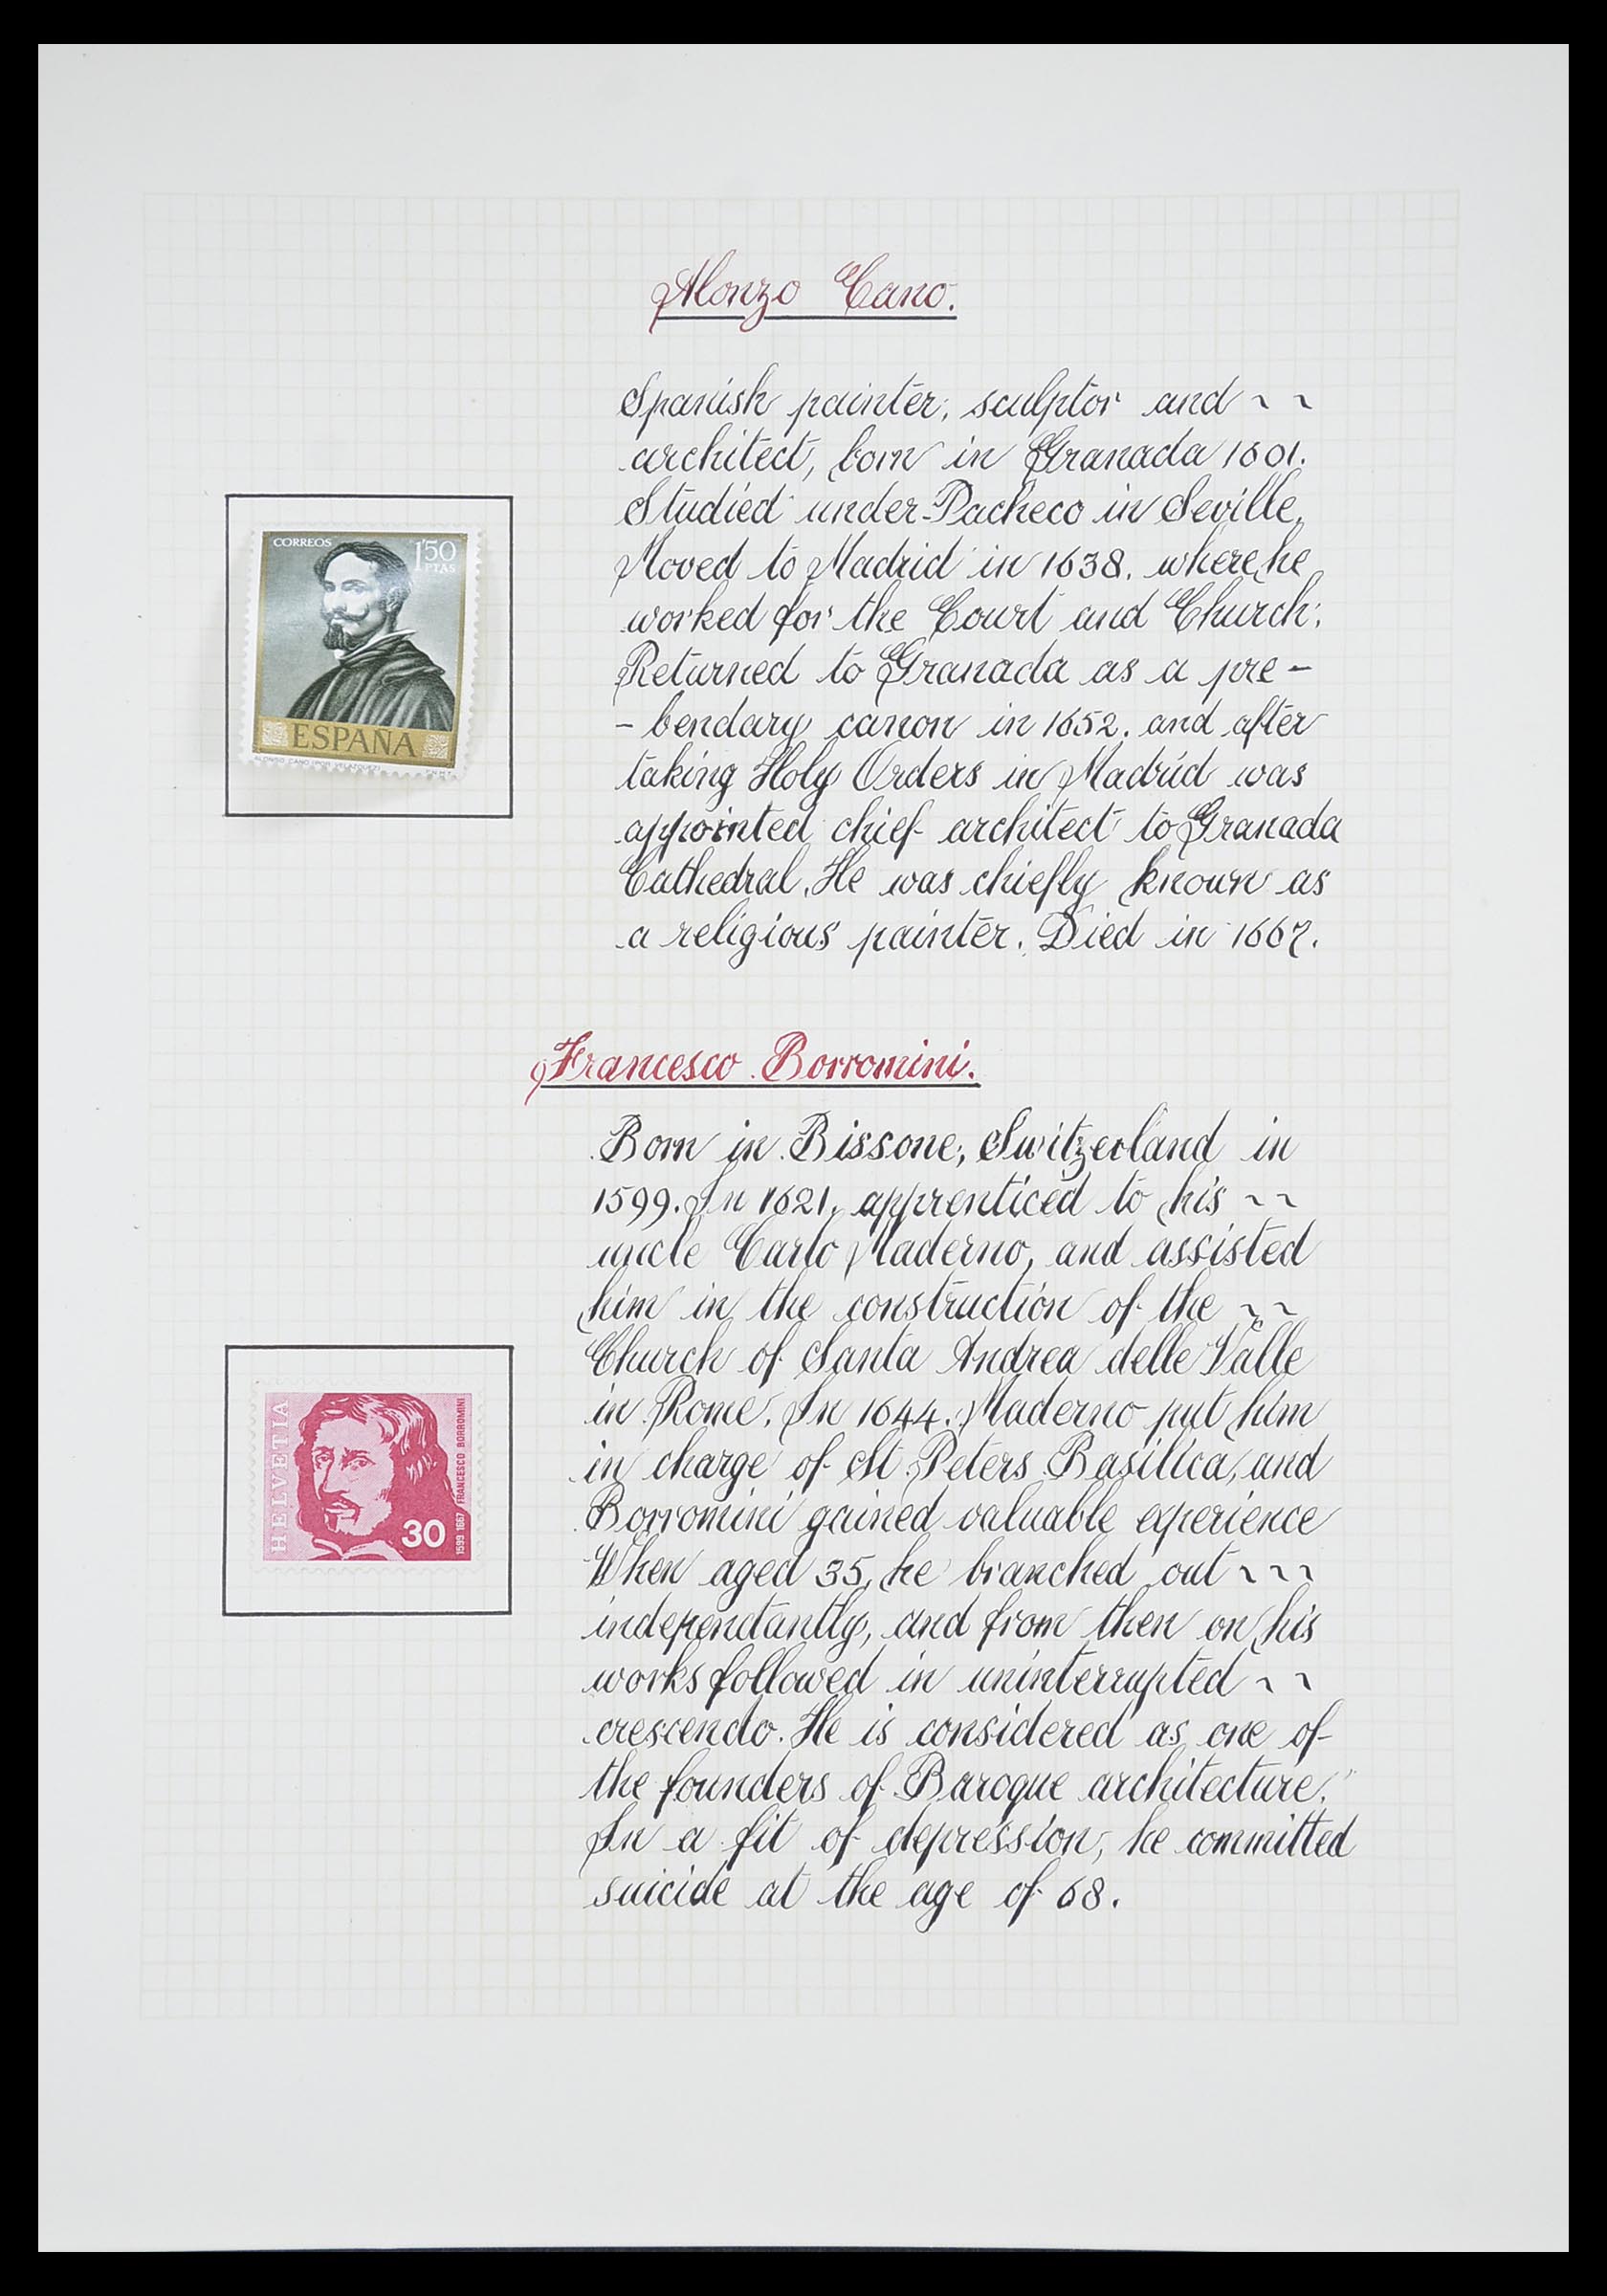 Alonzo Cano.
Spanish painter, sculptor and ~ ~
architect, born in Granada 1601.
Studied under Pacheco in Seville,
Moved to Madrid in 1638, where he
worked for the Court and Church.
Returned to Granada as a pre -
- bendary canon in 1652, and after
taking Holy Orders in Madrid was
appointed chief architect to Granada
Cathedral. He was chiefly known as
a religious painter. Died in 1667.
CORREOS
1'50
PTAS
ESPAÑA
ALONSO CANO (POR VELAZQUEZ)
F.N.M.T.
Francesco Borromini.
Born in Bissone, Switzerland in
1599. In 1621, apprenticed to his ~ ~
uncle Carlo Maderno, and assisted
him in the construction of the ~ ~
Church of Santa Andrea delle Valle
in Rome. In 1644, Maderno put him
in charge of St. Peters Basilica, and
Borromini gained valuable experience
When aged 35, he branched out ~ ~ ~
independantly, and from then on his
works followed in uninterrupted ~ ~
crescendo. He is considered as one of
the founders of Baroque architecture.
In a fit of depression, he committed
suicide at the age of 68.
HELVETIA
30
1599 1667 FRANCESCO BORROMINI